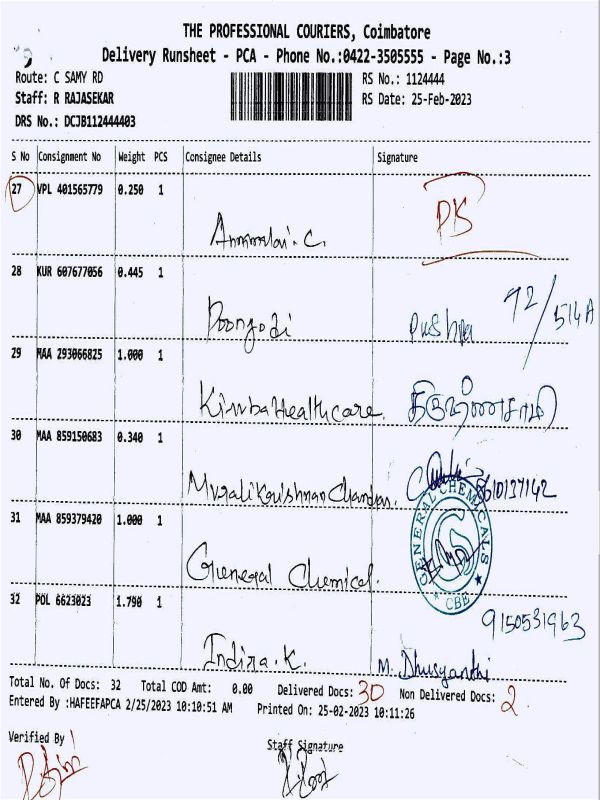 THE PROFESSIONAL COURIERS, Coimbatore
Delivery Runsheet - PCA - Phone No.:0422-3505555 - Page No.:3
Route: C SAMY RD RS No.: 1124444
Staff: R RAJASEKAR RS Date: 25-Feb-2023
DRS No.: DCJB112444403
S No Consignment No Weight PCS Consignee Details Signature
27 VPL 401565779 0.250 1
Annamalai. C.
28 KUR 607677056 0.445 1
Poongodi Pushpa 92/514A
29 MAA 293066825 1.000 1
Kimba Healthcare
30 MAA 859150683 0.340 1
Murali Krishnan Chandran.
31 MAA 859379420 1.000 1
GENERAL CHEMICALS
General Chemical.
CBE
32 POL 6623023 1.790 1
9150531963
Indira. K. M. Dhusyanthi
Total No. Of Docs: 32 Total COD Amt: 0.00 Delivered Docs: 30 Non Delivered Docs: 2
Entered By :HAFEEFAPCA 2/25/2023 10:10:51 AM Printed On: 25-02-2023 10:11:26
Verified By Staff Signature